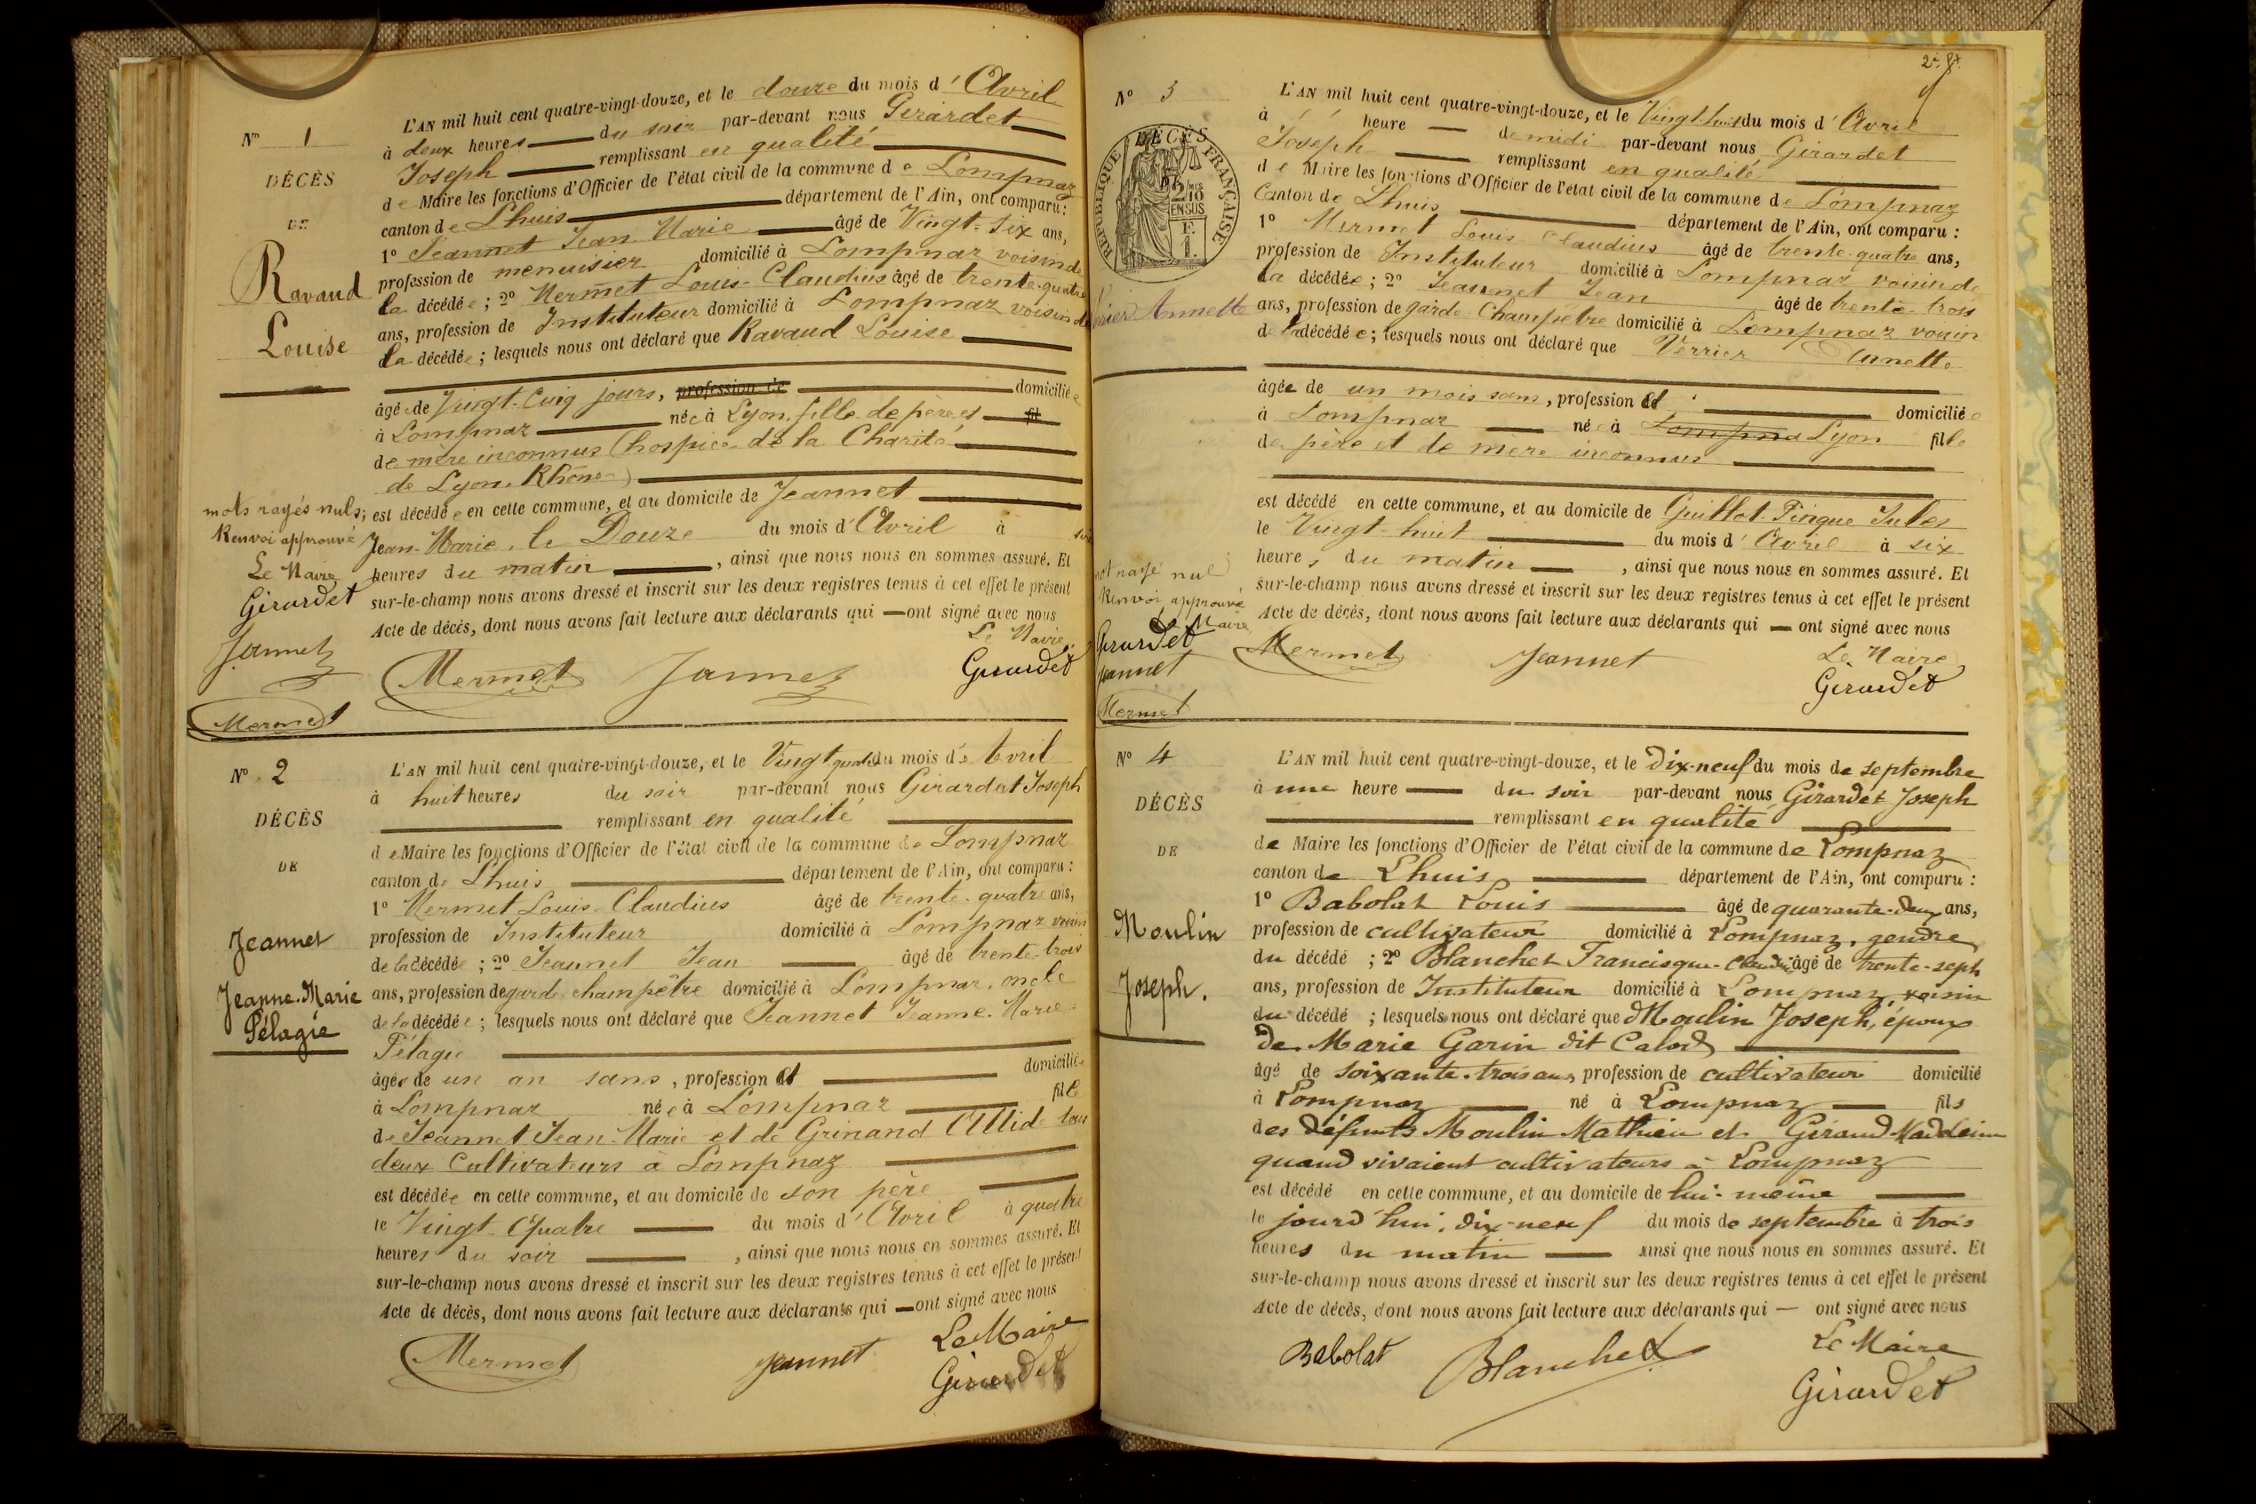 N° 1
DÉCÈS
DE
Ravaud
Louise
L'AN mil huit cent quatre-vingt-douze, et le douze du mois d'Avril
à deux heures du soir par-devant nous Girardet
Joseph remplissant en qualité
de Maire les fonctions d'Officier de l'état civil de la commune de Lompnaz
canton de Lhuis département de l'Ain, ont comparu :
1° Jeannet Jean Marie âgé de Vingt-six ans,
profession de menuisier domicilié à Lompnaz voisin de
la décédée ; 2° Mermet Louis-Claudius âgé de trente-quatre
ans, profession de Instituteur domicilié à Lompnaz voisin de
la décédée ; lesquels nous ont déclaré que Ravaud Louise
âgée de Vingt-Cinq jours, profession de domiciliée
à Lompnaz née à Lyon, fille de père et fil
de mère inconnus (hospice de la Charité
de Lyon. Rhône)
est décédée en cette commune, et au domicile de Jeannet
Jean-Marie, le Douze du mois d'Avril à six
heures du matin, ainsi que nous nous en sommes assuré. Et
sur-le-champ nous avons dressé et inscrit sur les deux registres tenus à cet effet le présent
Acte de décès, dont nous avons fait lecture aux déclarants qui — ont signé avec nous
mots rayés nuls;
Renvoi approuvé
Le Maire
Girardet
Jannet
Mermet
Mermet Jannet Le Maire,
Girardet
N° 2
DÉCÈS
DE
Jeannet
Jeanne-Marie
Pélagie
L'AN mil huit cent quatre-vingt-douze, et le Vingt quatre du mois d'Avril
à huit heures du soir par-devant nous Girardet Joseph
remplissant en qualité
de Maire les fonctions d'Officier de l'état civil de la commune de Lompnaz
canton de Lhuis département de l'Ain, ont comparu :
1° Mermet Louis-Claudius âgé de trente-quatre ans,
profession de Instituteur domicilié à Lompnaz voisin
de la décédée ; 2° Jeannet Jean âgé de trente-trois
ans, profession de garde champêtre domicilié à Lompnaz, oncle
de la décédée ; lesquels nous ont déclaré que Jeannet Jeanne-Marie-
Pélagie
âgée de un an sans, profession et domiciliée
à Lompnaz née à Lompnaz fille
de Jeannet Jean-Marie et de Grinand Allide tous
deux Cultivateurs à Lompnaz
est décédée en cette commune, et au domicile de son père
le Vingt-Quatre du mois d'Avril à quatre
heures du soir, ainsi que nous nous en sommes assuré. Et
sur-le-champ nous avons dressé et inscrit sur les deux registres tenus à cet effet le présent
Acte de décès, dont nous avons fait lecture aux déclarants qui — ont signé avec nous
Mermet Jeannet Le Maire
Girardet
N° 3
RÉPUBLIQUE FRANÇAISE
DÉCÈS
Annette
L'AN mil huit cent quatre-vingt-douze, et le Vingt huit du mois d'Avril
à heure de midi par-devant nous Girardet
Joseph remplissant en qualité
de Maire les fonctions d'Officier de l'état civil de la commune de Lompnaz
Canton de Lhuis département de l'Ain, ont comparu :
1° Mermet Louis Claudius âgé de trente-quatre ans,
profession de Instituteur domicilié à Lompnaz voisin de
la décédée ; 2° Jeannet Jean âgé de trente-trois
ans, profession de garde-Champêtre domicilié à Lompnaz voisin
de la décédée ; lesquels nous ont déclaré que Verrier Annette
âgée de un mois sans, profession et domiciliée
à Lompnaz née à Lompna Lyon fille
de père et de mère inconnus
est décédé en cette commune, et au domicile de Guillot-Pingue Jules
le Vingt-huit du mois d'Avril à six
heures du matin, ainsi que nous nous en sommes assuré. Et
sur-le-champ nous avons dressé et inscrit sur les deux registres tenus à cet effet le présent
Acte de décès, dont nous avons fait lecture aux déclarants qui — ont signé avec nous
mot rayé nul
Renvoi approuvé
Le Maire
Girardet
Jeannet
Mermet
Mermet Jeannet Le Maire,
Girardet
N° 4
DÉCÈS
DE
Moulin
Joseph.
L'AN mil huit cent quatre-vingt-douze, et le Dix-neuf du mois de septembre
à une heure du soir par-devant nous Girardet Joseph
remplissant en qualité
de Maire les fonctions d'Officier de l'état civil de la commune de Lompnaz
canton de Lhuis département de l'Ain, ont comparu :
1° Babolat Louis âgé de quarante-deux ans,
profession de cultivateur domicilié à Lompnaz, gendre
du décédé ; 2° Blanchet Francisque-Claudius âgé de trente-sept
ans, profession de Instituteur domicilié à Lompnaz, voisin
du décédé ; lesquels nous ont déclaré que Moulin Joseph, époux
de Marie Garin dit Calod
âgé de soixante-trois ans, profession de cultivateur domicilié
à Lompnaz né à Lompnaz fils
des défunts Moulin Mathieu et Giraud Madeleine
quand vivaient cultivateurs à Lompnaz
est décédé en cette commune, et au domicile de lui-même
le jourd'hui, dix-neuf du mois de septembre à trois
heures du matin ainsi que nous nous en sommes assuré. Et
sur-le-champ nous avons dressé et inscrit sur les deux registres tenus à cet effet le présent
Acte de décès, dont nous avons fait lecture aux déclarants qui — ont signé avec nous
Babolat Blanchet Le Maire
Girardet